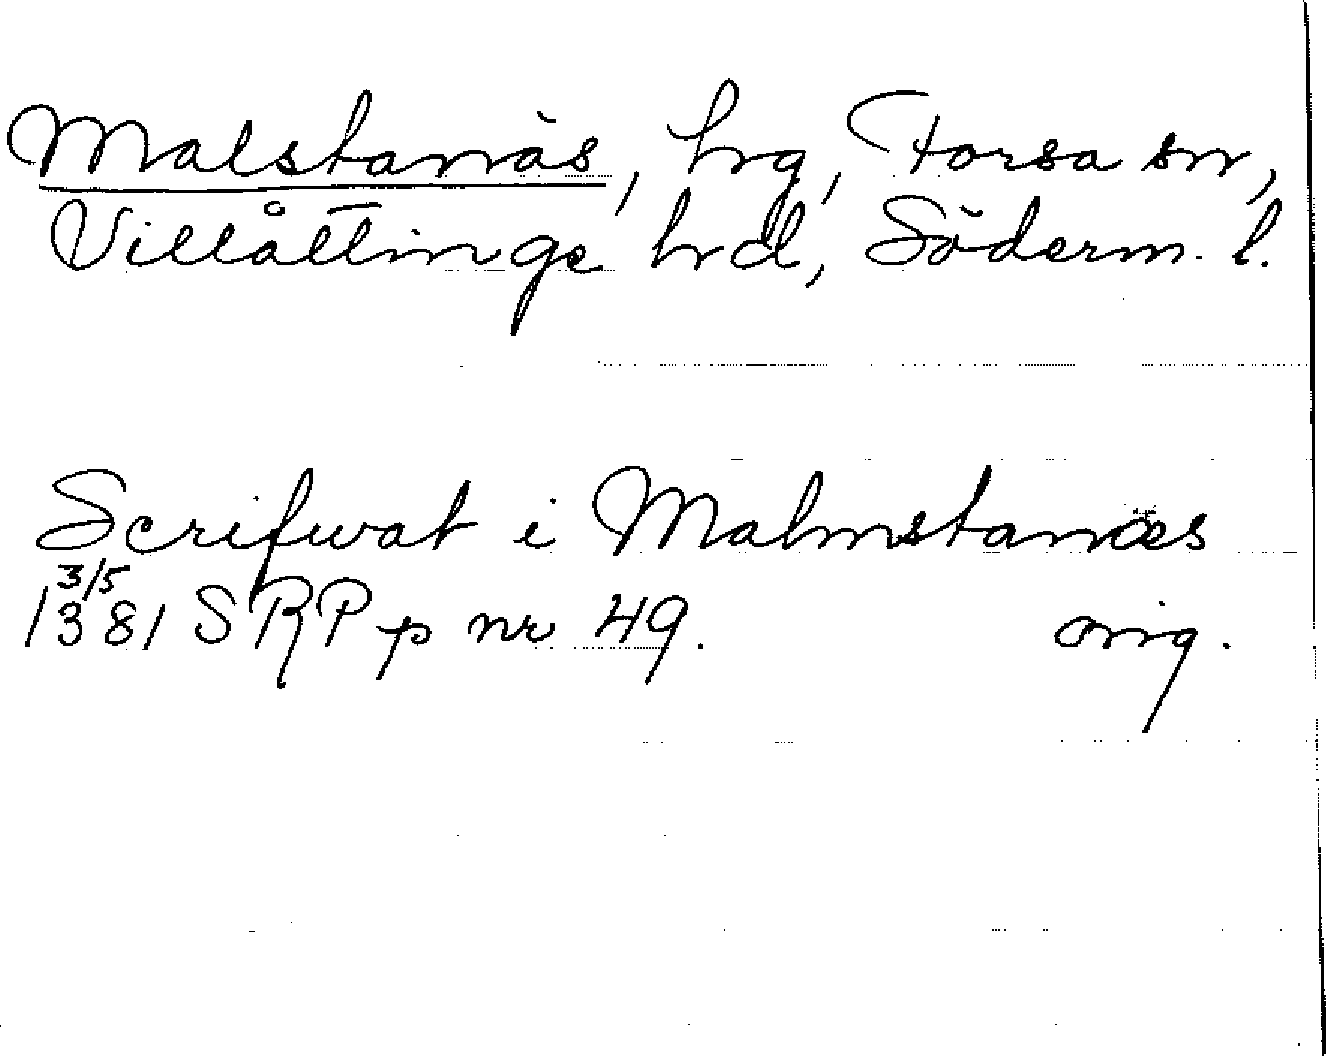 Malstanäs, hrg, Forsa sn,
Villåttinge hrd, Söderm. l.
Scrifwat i Malmstanæs
3/5
1381 SRP p nr 49. orig.